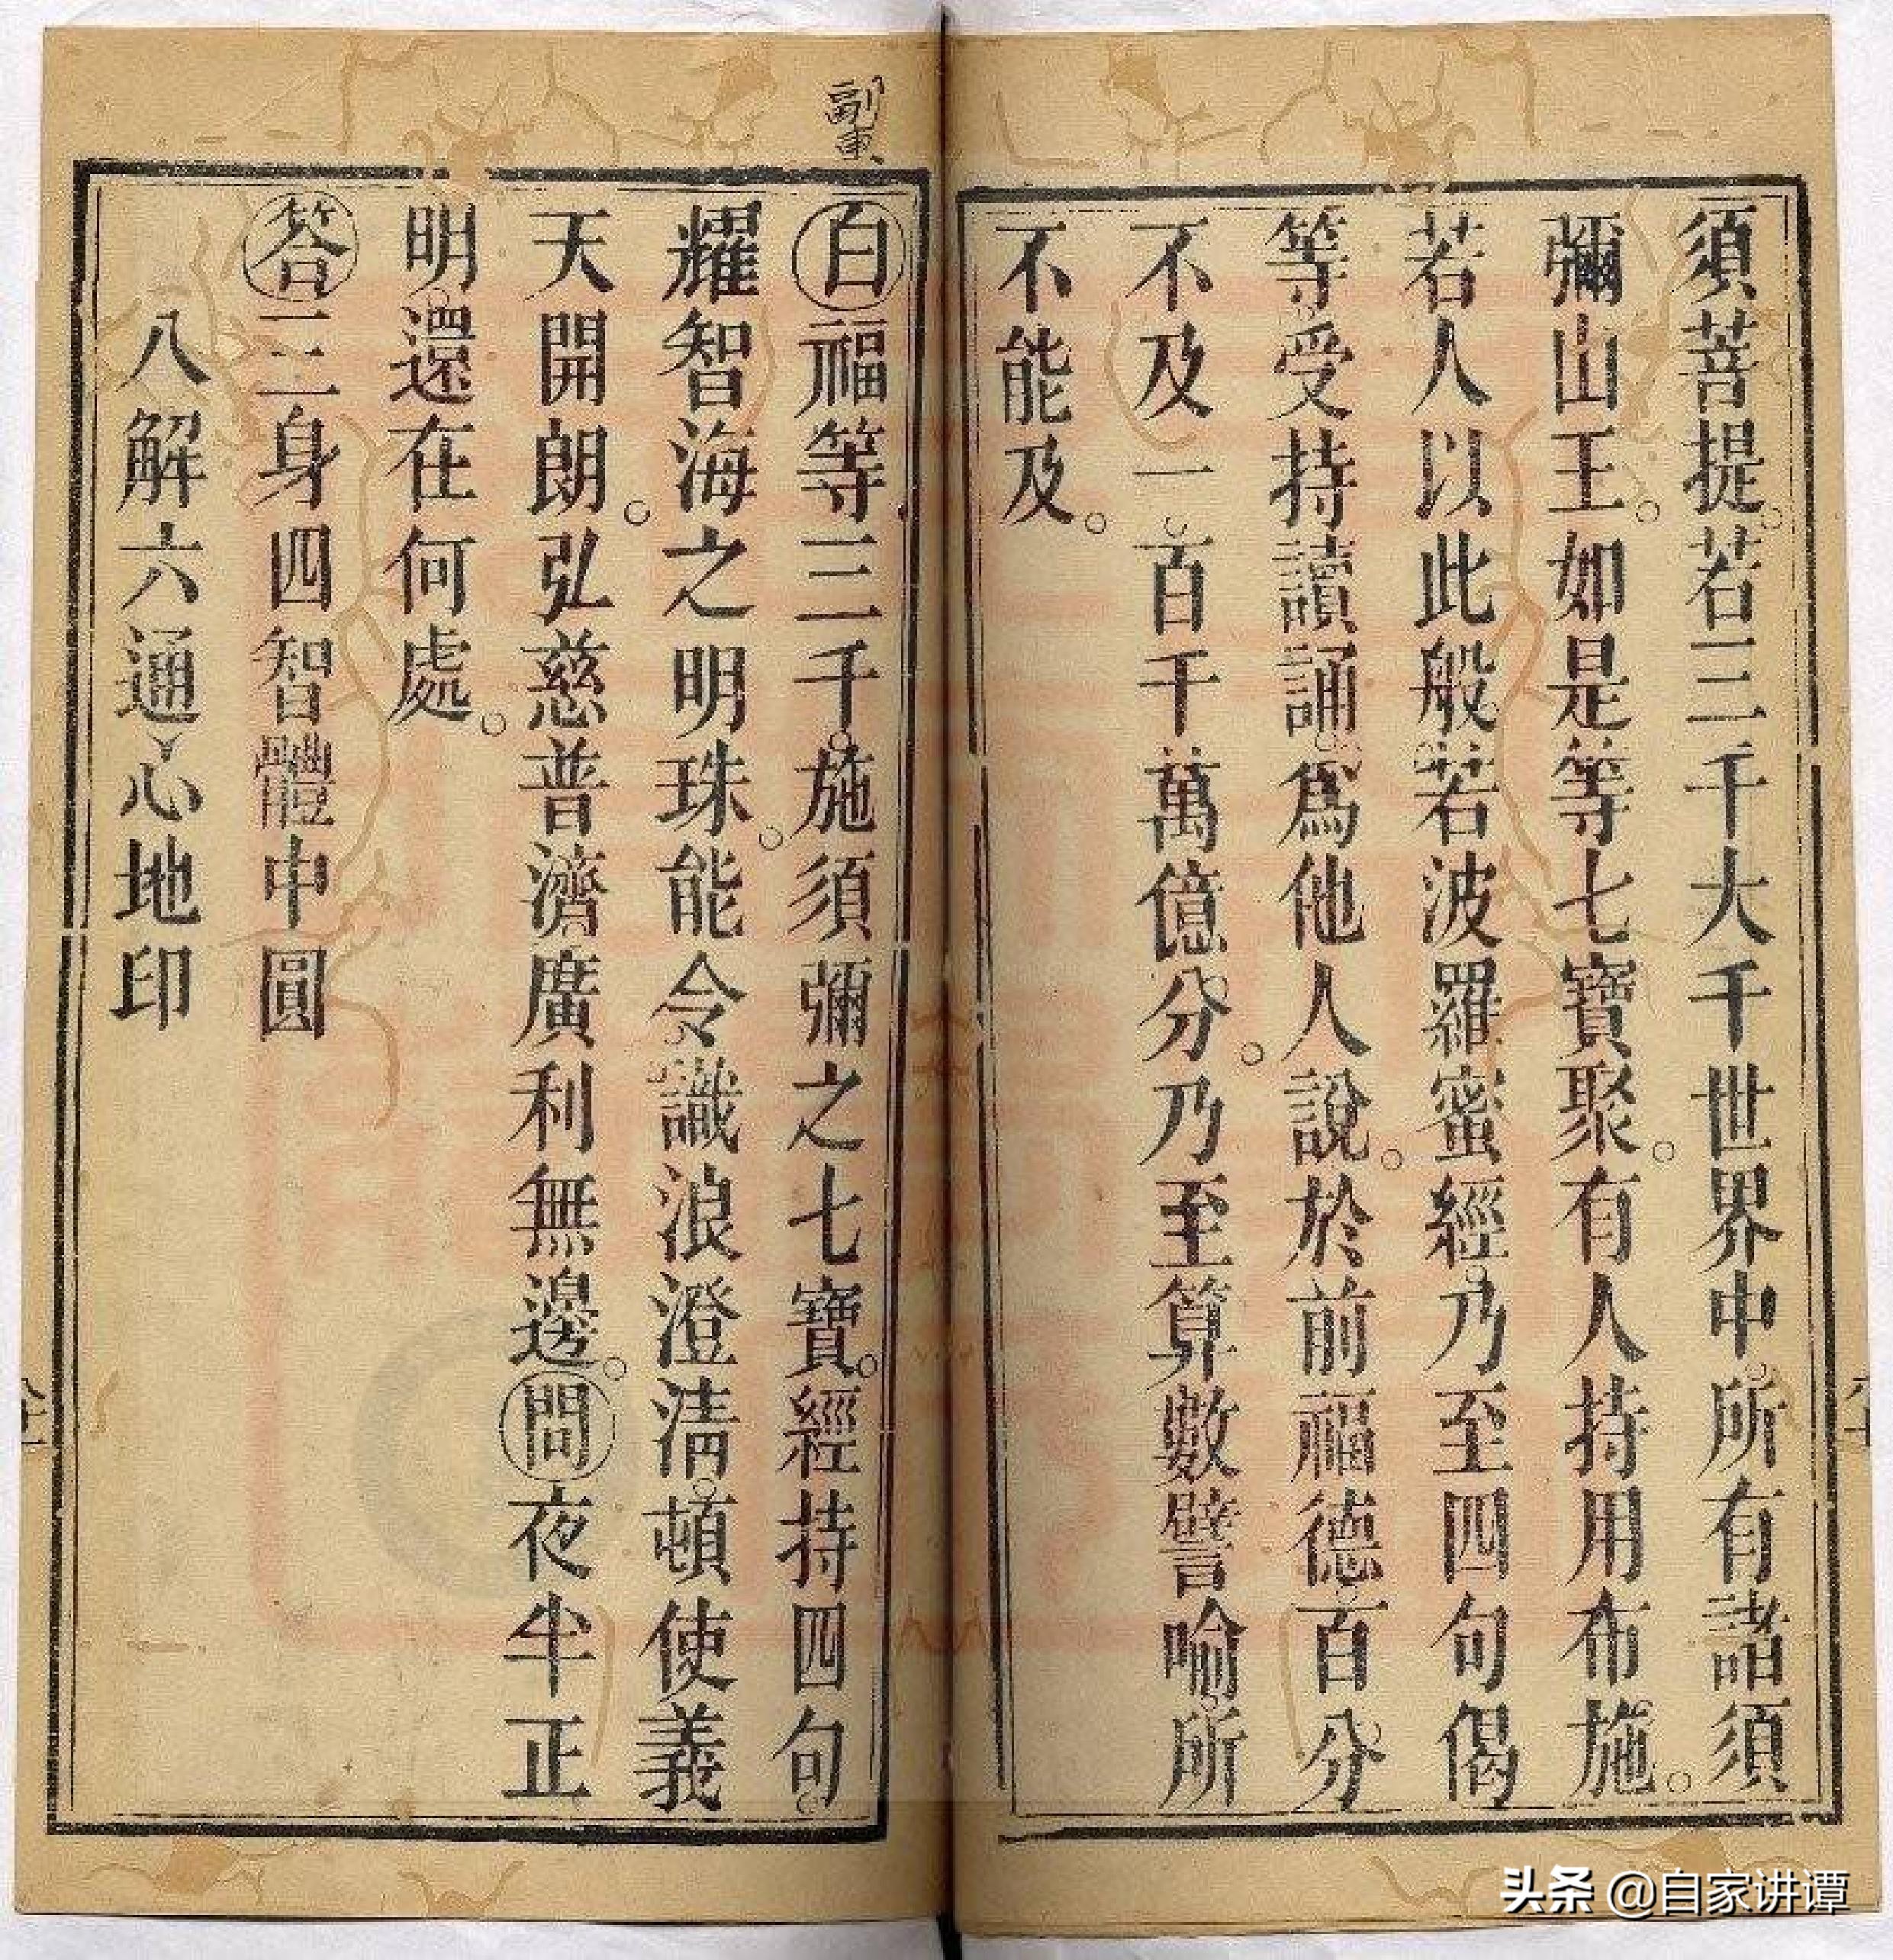 須菩提。若三千大千世界中。所有諸須
彌山王。如是等七寶聚。有人持用布施。
若人以此般若波羅蜜經。乃至四句偈
等。受持讀誦。為他人說。於前福德。百分
不及一。百千萬億分。乃至算數譬喻。所
不能及。
副東
白福等三千。施須彌之七寶。經持四句。
耀智海之明珠。能令識浪澄清。頓使義
天開朗。弘慈普濟。廣利無邊。問夜半正
明。還在何處。
荅三身四智體中圓
八解六通心地印
头条 @自家讲谭